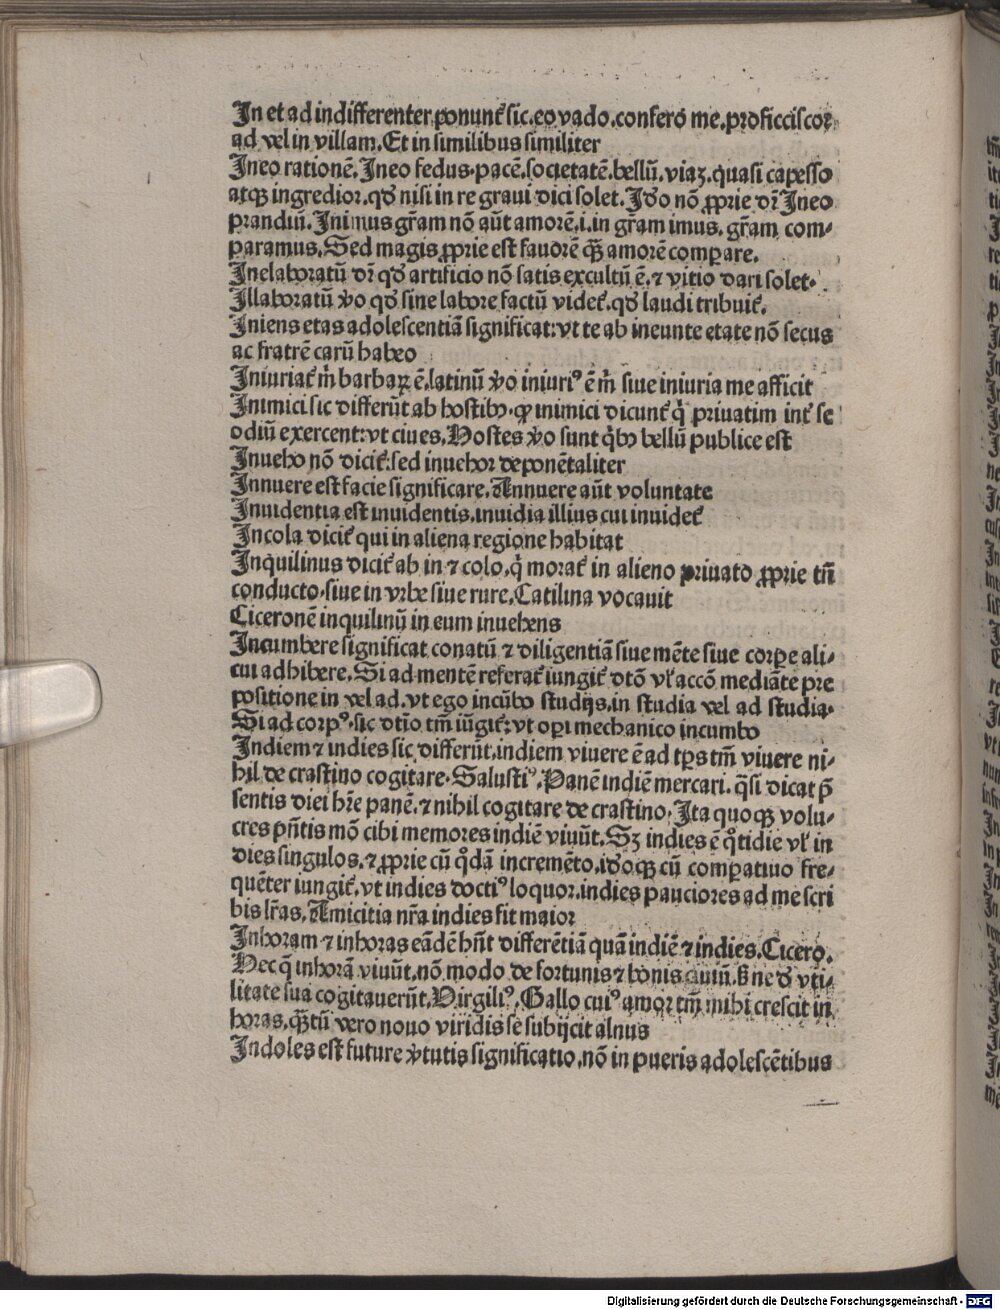 In et ad indifferenter ponunt᷒ sic.eo vado.confero me.proficciscor
ad vel in villam.Et in similibus similiter
Ineo rationē.Ineo fedus.pacē.societatē.bellū.viaʒ.quasi capesso
atqꝫ ingredior.qd̄ nisi in re graui dici solet.Ido nō ꝓprie dr̄ Ineo
prandiū.Inimus gr̄am nō aūt amorē.i.in gr̄am imus.gr̄am com-
paramus.Sed magis ꝓprie est fauorē qꝫ̄ amorē comꝑare.
Inelaboratū dr̄ qd̄ artificio nō satis excultū ē.⁊ vitio dari solet.
Illaboratū ꝟo qd̄ sine labore factū videt᷒.qd̄ laudi tribuit᷒.
Iniens etas adolescentiā significat:vt te ab ineunte etate nō secus
ac fratrē carū habeo
Iniuriat᷒ m̄ barbaꝝ ē.latinū ꝟo iniuriꝰ ē m̄ siue iniuria me afficit
Inimici sic differūt ab hostibꝫ.qꝛ inimici dicunt᷒ q̇ priuatim int᷒ se
odiū exercent:vt ciues.Hostes ꝟo sunt q̇bꝫ bellū publice est
Inueho nō dicit᷒:sed inuehor deponētaliter
Innuere est facie significare.Annuere aūt voluntate
Inuidentia est inuidentis.inuidia illius cui inuidet᷒
Incola dicit᷒ qui in aliena regione habitat
Inquilinus dicit᷒ ab in ⁊ colo.q̇ morat᷒ in alieno priuato ꝓprie tm̄
conducto.siue in vrbe siue rure.Catilina vocauit
Ciceronē inquilinū in eum inuehens
Incumbere significat conatū ⁊ diligentiā siue mēte siue corꝑe ali-
cui adhibere.Si ad mentē referat᷒ iungit᷒ dtō vl᷒ accō mediāte pre
positione in vel ad.vt ego incūbo studijs.in studia vel ad studia.
Si ad corpꝰ.sic dtio tm̄ iūgit᷒:vt oꝑi mechanico incumbo
Indiem ⁊ indies sic differūt.indiem viuere ē ad tꝑs tm̄ viuere ni-
hil de crastino cogitare.Salustiꝰ.Panē indiē mercari.q̄si dicat p̄
sentis diei hr̄e panē.⁊ nihil cogitare de crastino.Ita quoqꝫ volu-
cres pn̄tis mō cibi memores indiē viuūt.Sꝫ indies ē qͦtidie vl᷒ in
dies singulos.⁊ ꝓprie cū qͦdā incremēto.idoqꝫ cū comꝑatiuo fre-
quēter iungit᷒.vt indies doctiꝰ loquor.indies pauciores ad me scri
bis lr̄as.Amicitia nr̄a indies fit maior
Inhoram ⁊ inhoras eādē hn̄t differētiā quā indiē ⁊ indies.Cicero.
Nec q̄ inhorā viuūt.nō modo de fortunis ⁊ bonis ciuiū. ne d̄ vti-
litate sua cogitauerūt.Virgiliꝰ.Gallo cuiꝰ amor tm̄ mihi crescit in
horas.qꝫ̄tū vero nouo viridis se subijcit alnus
Indoles est future ꝟtutis significatio.nō in pueris adolescētibus
Digitalisierung gefördert durch die Deutsche Forschungsgemeinschaft - DFG